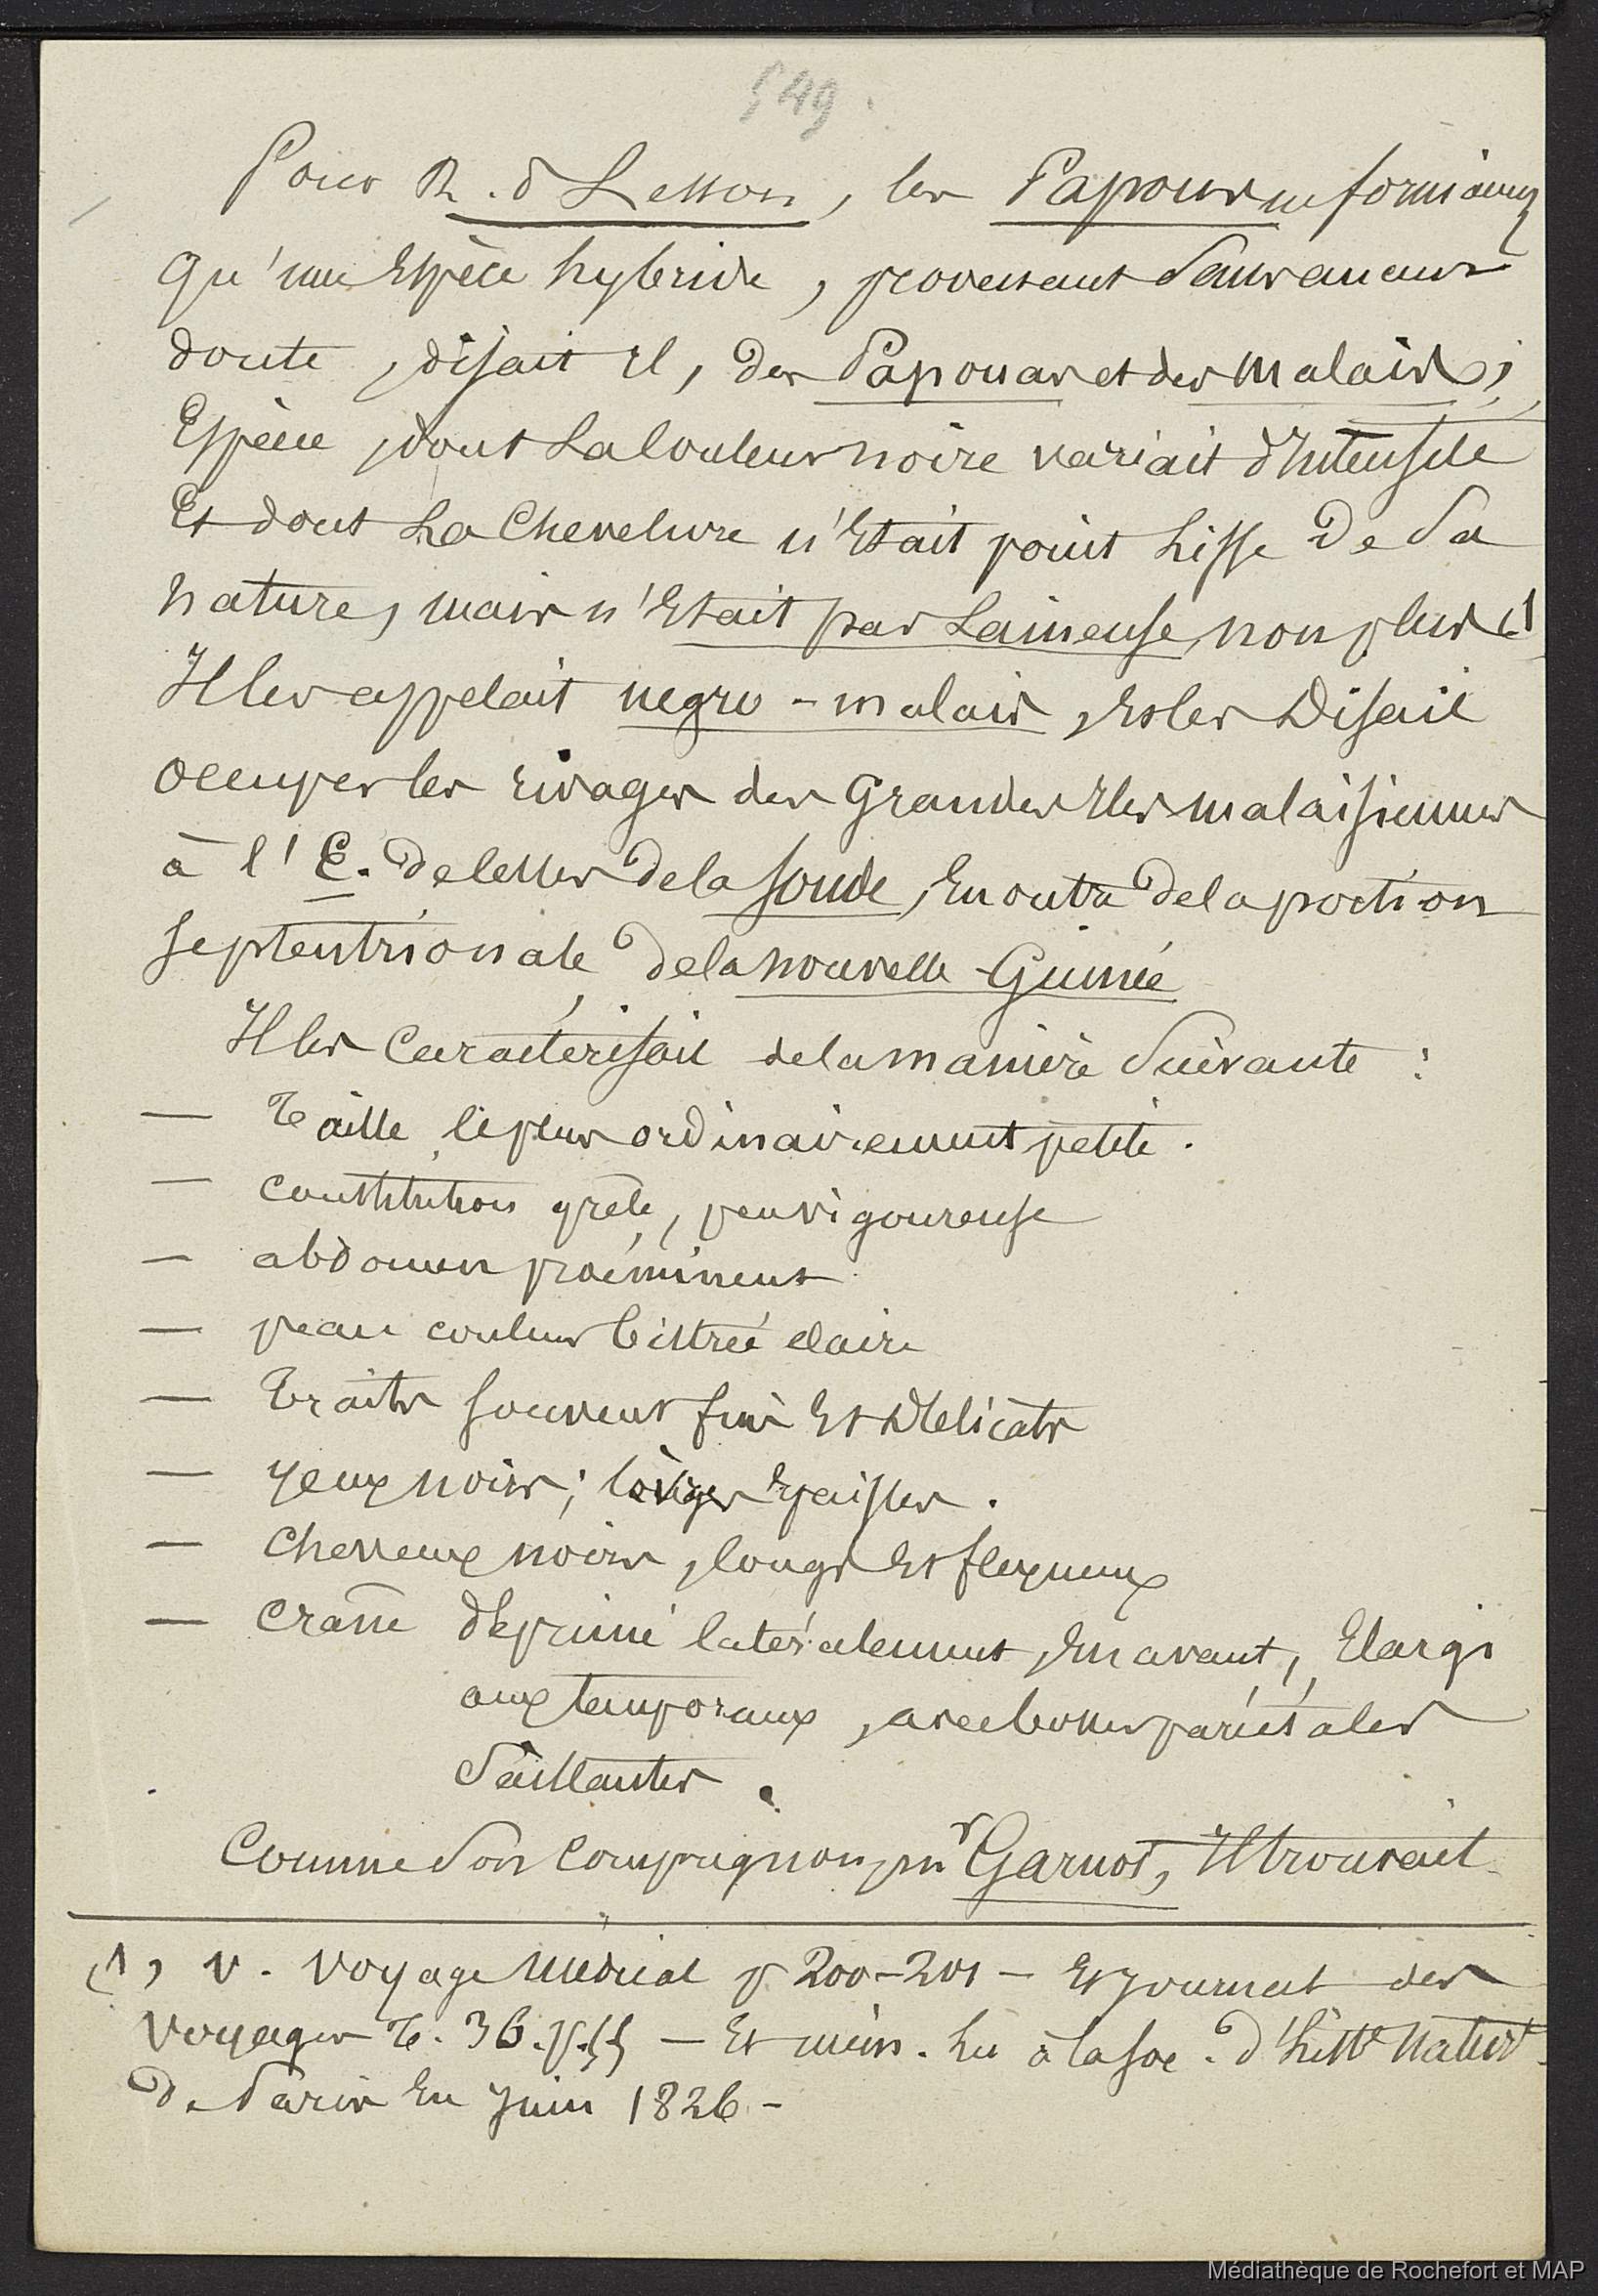 549.
Pour R. d Lesson, les Papous ne formaient
qu'une Espèce hybride, provenant Sans aucun
doute, disait il, des Papouas et des malais ;
Espèce, dont La Couleur noire variait d'Intensité
Et dont La Chevelure n'Etait point Lisse De Sa
nature, mais n'Etait pas Laineuse, non plus (1
Il les appelait negro-malais, Et les Disait
occuper les rivages des Grandes Iles malaisiennes
à l'E. de celles de la Sonde, En outre de la portion
septentrionale de la nouvelle-Guinée
Il les Caractérisait de la manière Suivante :
— Taille le plus ordinairement petite.
— constitution grêle, peu vigoureuse
— abdomen proéminent
— peau couleur bistrée claire
— Traits souvent fins Et Délicats
— yeux noirs ; lèvres Epaisses.
— Cheveux noirs, longs Et flexueux
— Crâne déprimé latéralement, En avant, Elargi
aux temporaux, avec bosses pariétales
Saillantes.
Comme Son Compagnon, mr Garnot, Il trouvait
(1, V. Voyage Médical p 200-201 — Et Journal des
Voyages T. 36. p. 55 — Et mém. Lu à la Soc. d'histre Naturle
De Paris En Juin 1826 -
Médiathèque de Rochefort et MAP